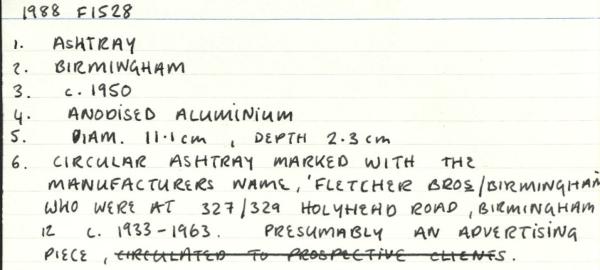 1988 F1528
1. ASHTRAY
2. BIRMINGHAM
3. c. 1950
4. ANODISED ALUMINIUM
5. DIAM. 11.1cm , DEPTH 2.3cm
6. CIRCULAR ASHTRAY MARKED WITH THE
MANUFACTURERS NAME, 'FLETCHER BROS/BIRMINGHAM
WHO WERE AT 327/329 HOLYHEAD ROAD, BIRMINGHAM
12 c. 1933-1963. PRESUMABLY AN ADVERTISING
PIECE, CIRCULATED TO PROSPECTIVE CLIENTS.